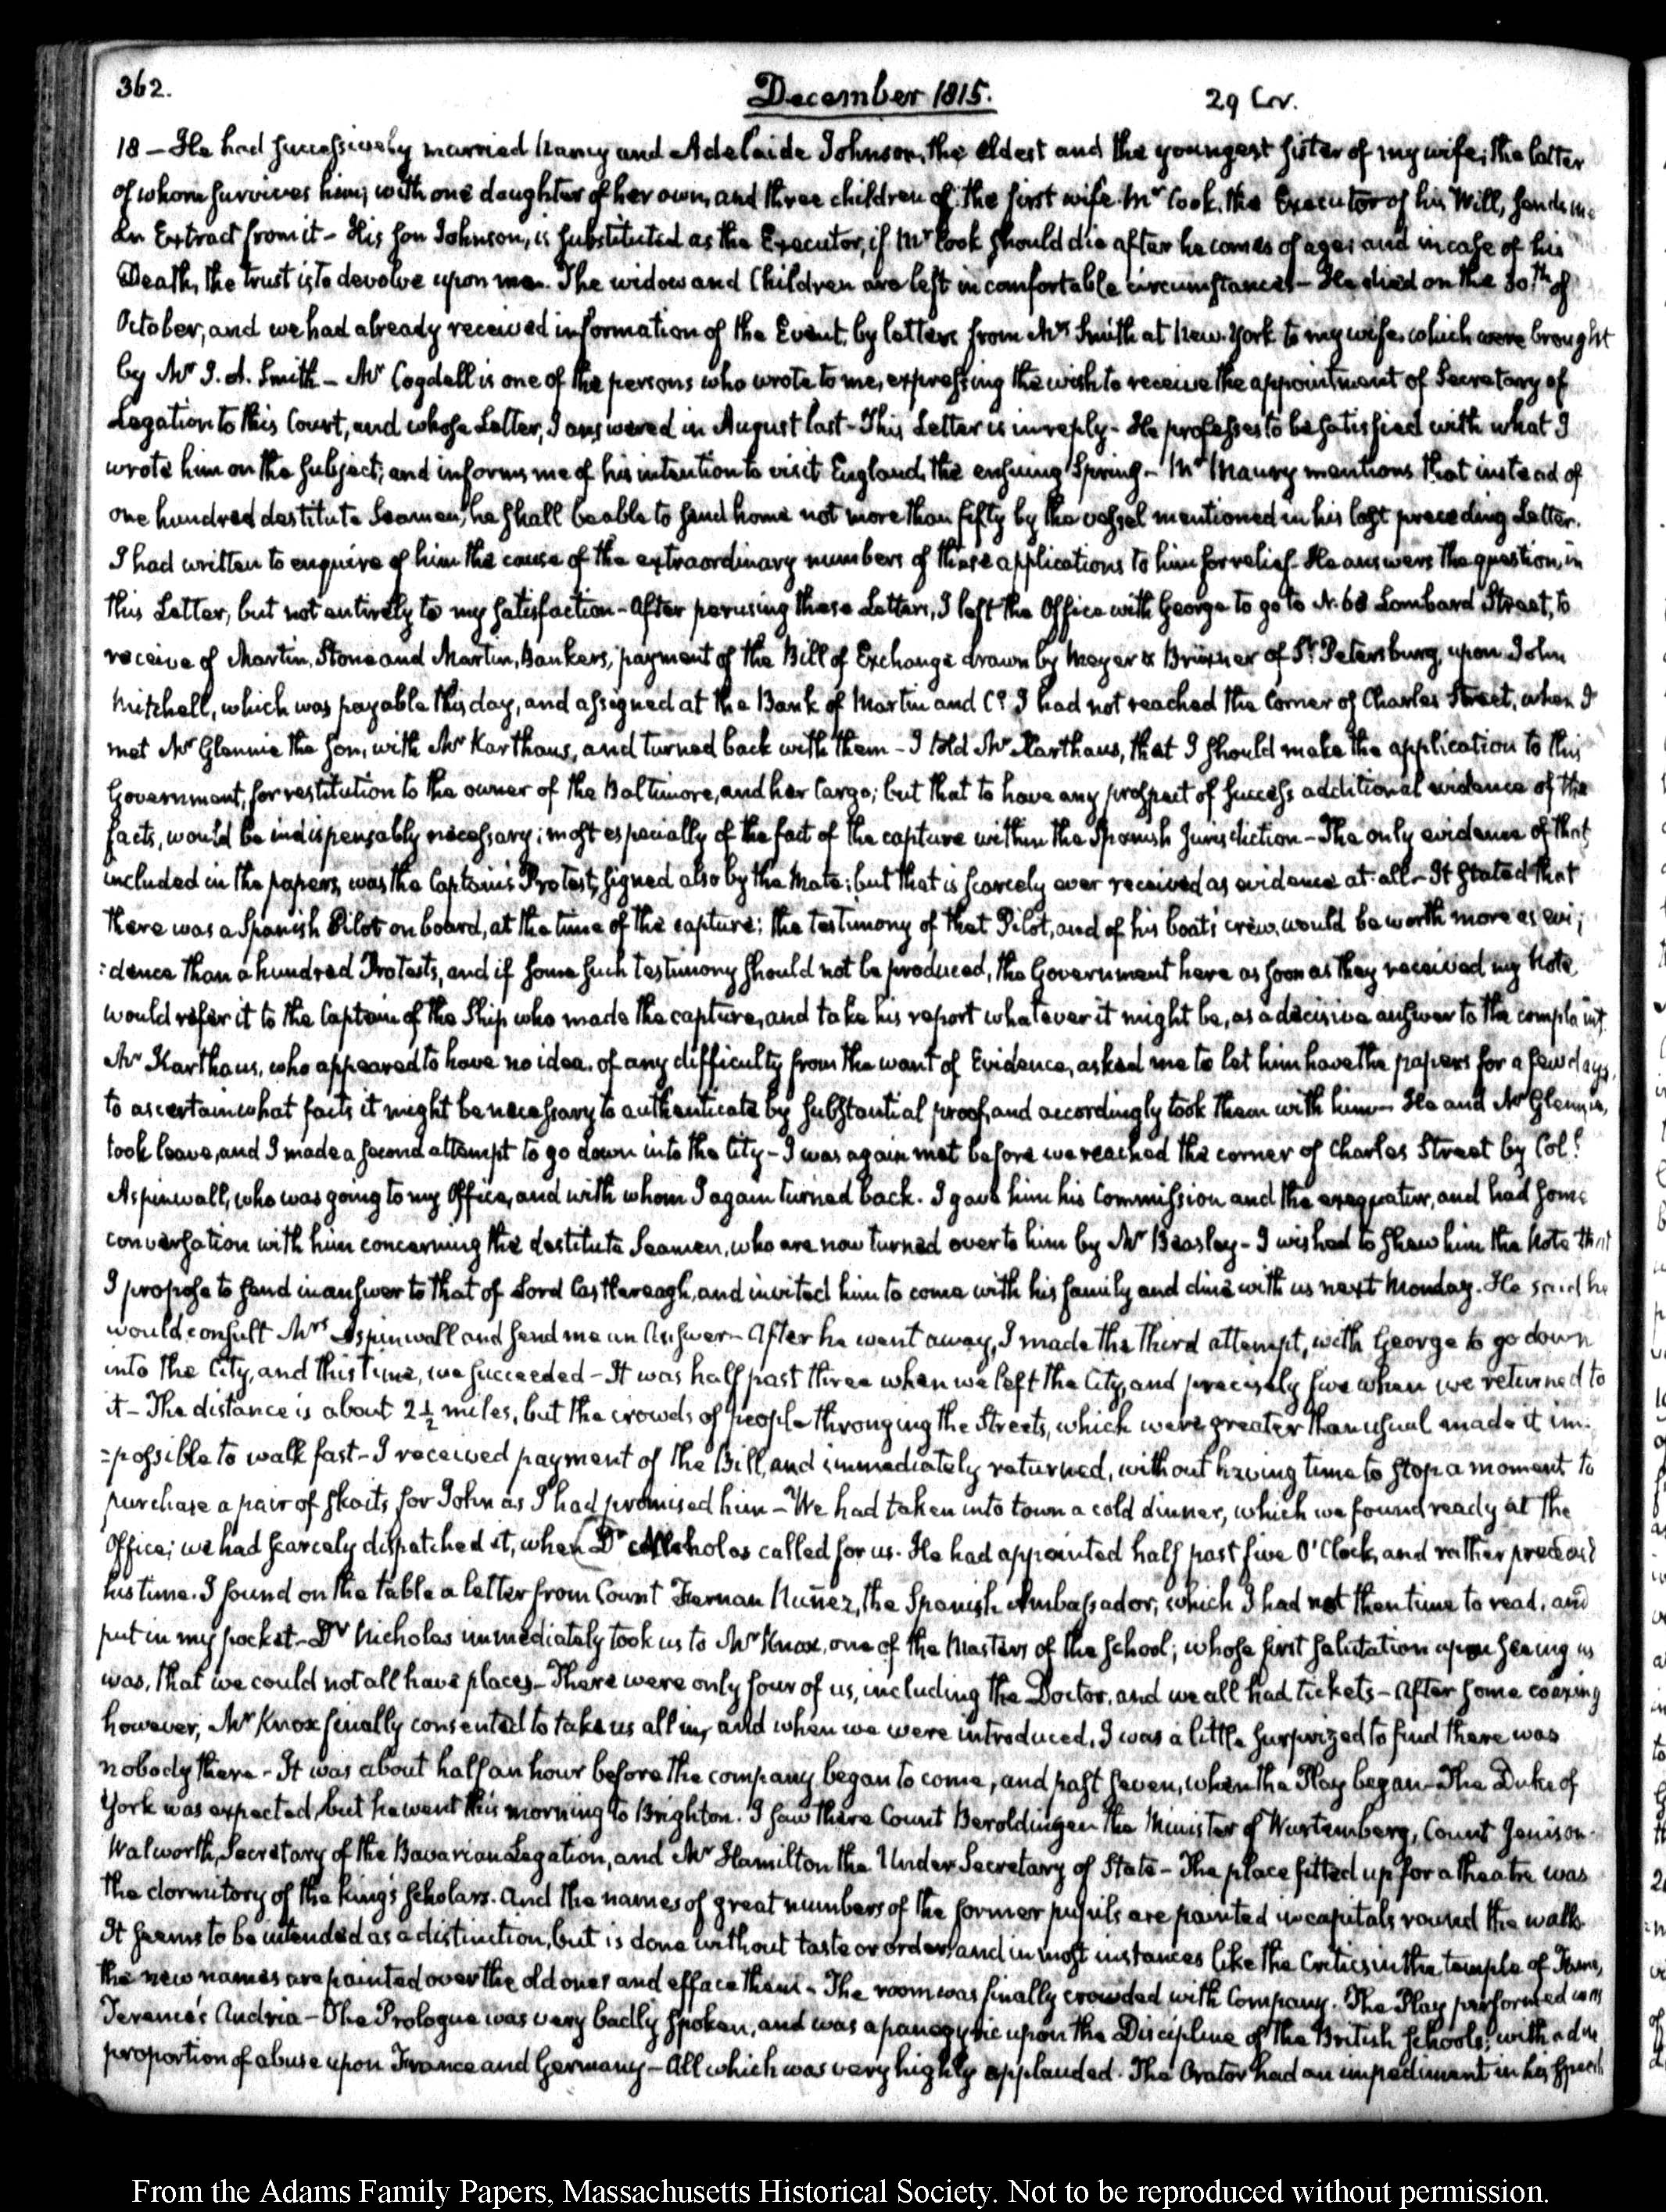 362.
December 1815.
29 Cov.
18 — He had successively married Nancy and Adelaide Johnson, the eldest and the youngest sister of my wife; the latter
of whom survives him; with one daughter of her own, and three children of the first wife. Mr Cook, the Executor of his Will, sends me
an Extract from it — His son Johnson, is substituted as the Executor, if Mr Cook should die after he comes of age; and in case of his
Death, the trust is to devolve upon me. The widow and Children are left in comfortable circumstances — He died on the 30.th of
October, and we had already received information of the Event, by letters from Mrs Smith at New-York to my wife, which were brought
by Mr J. A. Smith — Mr Cogdell is one of the persons who wrote to me, expressing the wish to receive the appointment of Secretary of
Legation to this Court, and whose Letter, I answered in August last — This Letter is in reply — He professes to be satisfied with what I
wrote him on the subject; and informs me of his intention to visit England, the ensuing Spring — Mr Maury mentions that instead of
one hundred destitute Seamen, he shall be able to send home not more than fifty by the vessel mentioned in his last preceding Letter.
I had written to enquire of him the cause of the extraordinary numbers of these applications to him for relief. He answers the question, in
this Letter, but not entirely to my satisfaction — After perusing these Letters, I left the Office with George to go to N. 68 Lombard Street, to
receive of Martin, Stone and Martin, Bankers, payment of the Bill of Exchange drawn by Meyer & Brüxner of St Petersburg, upon John
Mitchell, which was payable this day, and assigned at the Bank of Martin and Co. I had not reached the Corner of Charles Street, when I
met Mr Glennie the son, with Mr Karthaus, and turned back with them — I told Mr Karthaus, that I should make the application to this
Government, for restitution to the owner of the Baltimore, and her Cargo; but that to have any prospect of success additional evidence of the
facts, would be indispensably necessary; most especially of the fact of the capture within the Spanish jurisdiction — The only evidence of that
included in the papers, was the Captain's Protest, signed also by the Mate; but that is scarcely ever received as evidence at all — It stated that
there was a Spanish Pilot on board, at the time of the capture; the testimony of that Pilot, and of his boat's crew, would be worth more as evi;
:dence than a hundred Protests, and if some such testimony should not be produced, the Government here as soon as they received my Note
would refer it to the Captain of the Ship who made the capture, and take his report whatever it might be, as a decisive answer to the complaint.
Mr Karthaus, who appeared to have no idea of any difficulty from the want of Evidence, asked me to let him have the papers for a few days,
to ascertain what facts it might be necessary to authenticate by substantial proof, and accordingly took them with him — He and Mr Glennie,
took leave, and I made a second attempt to go down into the City — I was again met before we reached the corner of Charles Street by Col.l
Aspinwall, who was going to my Office, and with whom I again turned back. I gave him his Commission and the exequatur, and had some
conversation with him concerning the destitute Seamen, who are now turned over to him by Mr Beasley — I wished to shew him the Note that
I propose to send in answer to that of Lord Castlereagh, and invited him to come with his family and dine with us next Monday. He said he
would consult Mrs Aspinwall and send me an Answer — After he went away, I made the third attempt, with George to go down
into the City, and this time, we succeeded — It was half past three when we left the City, and precisely five when we returned to
it — The distance is about 2½ miles, but the crowds of people thronging the Streets, which were greater than usual made it im-
=possible to walk fast — I received payment of the Bill, and immediately returned, without having time to stop a moment to
purchase a pair of skaits for John as I had promised him — We had taken into town a cold dinner, which we found ready at the
Office; we had scarcely dispatched it, when Dr Nicholas called for us. He had appointed half past five O'Clock, and rather preceded
his time. I found on the table a letter from Count Fernan Nuñez, the Spanish Ambassador; which I had not then time to read, and
put in my pocket — Dr Nicholas immediately took us to Mr Knox, one of the Masters of the School; whose first salutation upon seeing us
was, that we could not all have places — There were only four of us, including the Doctor, and we all had tickets — After some coaxing
however, Mr Knox finally consented to take us all in, and when we were introduced, I was a little surprized to find there was
nobody there — It was about half an hour before the company began to come, and past seven, when the Play began — The Duke of
York was expected, but he went this morning to Brighton. I saw there Count Beroldingen the Minister of Wurtemberg, Count Jenison-
Walworth, Secretary of the Bavarian Legation, and Mr Hamilton the Under Secretary of State — The place fitted up for a theatre was
the dormitory of the king's scholars. And the names of great numbers of the former pupils are painted in capitals round the walls.
It seems to be intended as a distinction, but is done without taste or order, and in most instances like the Critics in the temple of Fame,
the new names are painted over the old ones and efface them — The room was finally crowded with Company. The Play performed was
Terence's Andria — The Prologue was very badly spoken, and was a panegyric upon the Discipline of the British Schools; with a due
proportion of abuse upon France and Germany — All which was very highly applauded. The Orator had an impediment in his speech
From the Adams Family Papers, Massachusetts Historical Society. Not to be reproduced without permission.